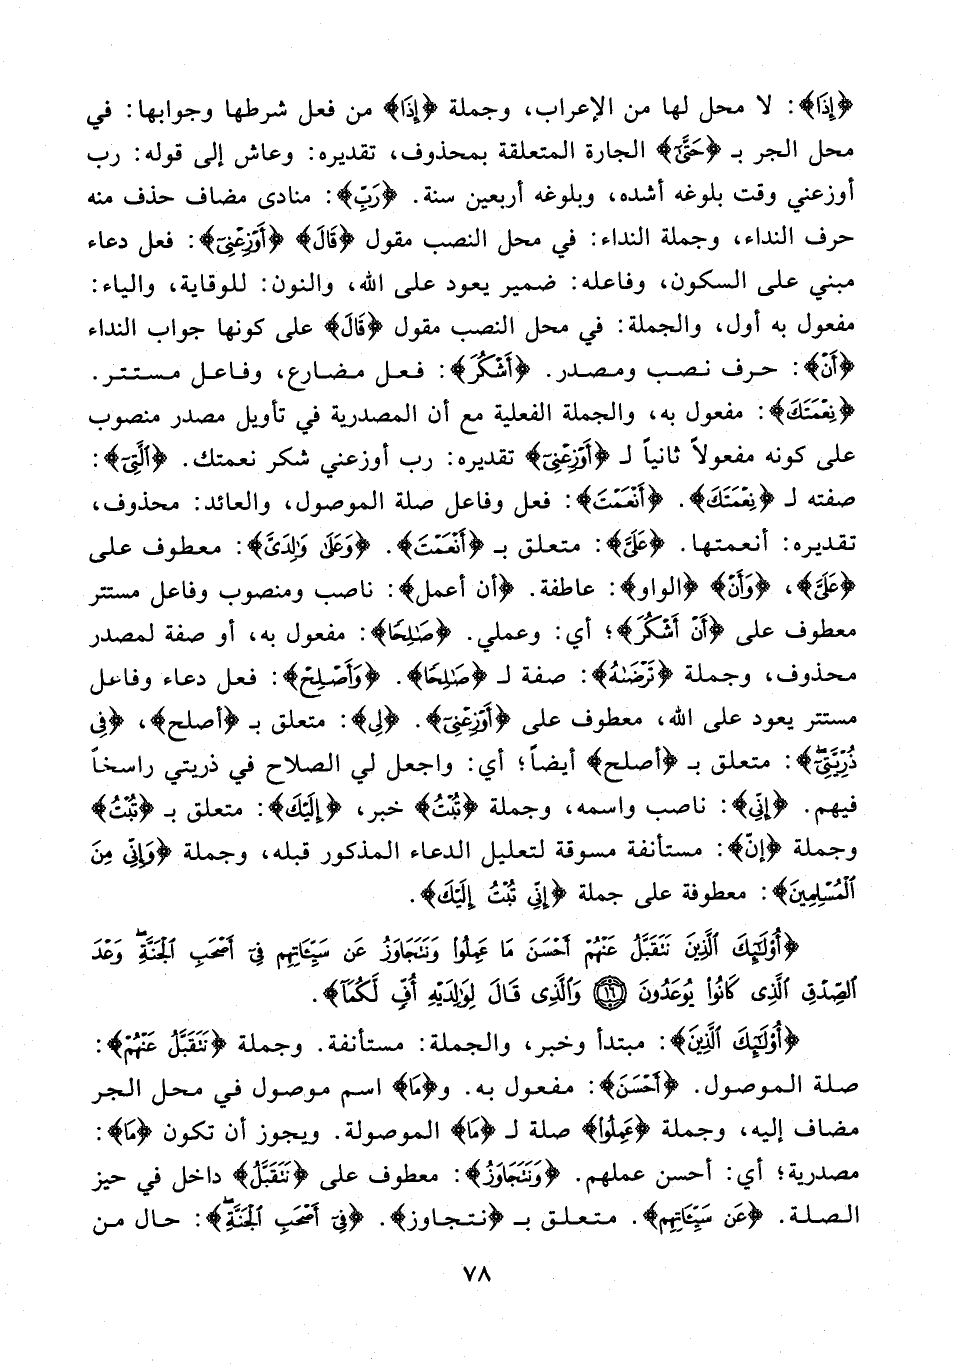 ﴿إِذَا﴾: لا محل لها من الإعراب، وجملة ﴿إِذَا﴾ من فعل شرطها وجوابها: في
محل الجر بـ ﴿حَتَّىٰ﴾ الجارة المتعلقة بمحذوف، تقديره: وعاش إلى قوله: رب
أوزعني وقت بلوغه أشده، وبلوغه أربعين سنة. ﴿رَبِّ﴾: منادى مضاف حذف منه
حرف النداء، وجملة النداء: في محل النصب مقول ﴿قَالَ﴾ ﴿أَوْزِعْنِيٓ﴾: فعل دعاء
مبني على السكون، وفاعله: ضمير يعود على الله، والنون: للوقاية، والياء:
مفعول به أول، والجملة: في محل النصب مقول ﴿قَالَ﴾ على كونها جواب النداء
﴿أَنْ﴾: حرف نصب ومصدر. ﴿أَشْكُرَ﴾: فعل مضارع، وفاعل مستتر.
﴿نِعْمَتَكَ﴾: مفعول به، والجملة الفعلية مع أن المصدرية في تأويل مصدر منصوب
على كونه مفعولاً ثانياً لـ ﴿أَوْزِعْنِيٓ﴾ تقديره: رب أوزعني شكر نعمتك. ﴿ٱلَّتِيٓ﴾:
صفته لـ ﴿نِعْمَتَكَ﴾. ﴿أَنْعَمْتَ﴾: فعل وفاعل صلة الموصول، والعائد: محذوف،
تقديره: أنعمتها. ﴿عَلَيَّ﴾: متعلق بـ ﴿أَنْعَمْتَ﴾. ﴿وَعَلَىٰ وَٰلِدَيَّ﴾: معطوف على
﴿عَلَيَّ﴾، ﴿وَأَنْ﴾ ﴿الواو﴾: عاطفة. ﴿أن أعمل﴾: ناصب ومنصوب وفاعل مستتر
معطوف على ﴿أَنْ أَشْكُرَ﴾؛ أي: وعملي. ﴿صَٰلِحًا﴾: مفعول به، أو صفة لمصدر
محذوف، وجملة ﴿تَرْضَىٰهُ﴾: صفة لـ ﴿صَٰلِحًا﴾. ﴿وَأَصْلِحْ﴾: فعل دعاء وفاعل
مستتر يعود على الله، معطوف على ﴿أَوْزِعْنِيٓ﴾. ﴿لِي﴾: متعلق بـ ﴿أصلح﴾، ﴿فِي
ذُرِّيَّتِيٓ﴾: متعلق بـ ﴿أصلح﴾ أيضاً؛ أي: واجعل لي الصلاح في ذريتي راسخاً
فيهم. ﴿إِنِّي﴾: ناصب واسمه، وجملة ﴿تُبْتُ﴾ خبر، ﴿إِلَيْكَ﴾: متعلق بـ ﴿تُبْتُ﴾
وجملة ﴿إنّ﴾: مستأنفة مسوقة لتعليل الدعاء المذكور قبله، وجملة ﴿وَإِنِّي مِنَ
ٱلْمُسْلِمِينَ﴾: معطوفة على جملة ﴿إِنِّي تُبْتُ إِلَيْكَ﴾.
﴿أُوْلَٰٓئِكَ ٱلَّذِينَ نَتَقَبَّلُ عَنْهُمْ أَحْسَنَ مَا عَمِلُوا۟ وَنَتَجَاوَزُ عَن سَيِّـَٔاتِهِمْ فِيٓ أَصْحَٰبِ ٱلْجَنَّةِ ۖ وَعْدَ
ٱلصِّدْقِ ٱلَّذِي كَانُوا۟ يُوعَدُونَ ١٦ وَٱلَّذِي قَالَ لِوَٰلِدَيْهِ أُفٍّ لَّكُمَآ﴾.
﴿أُوْلَٰٓئِكَ ٱلَّذِينَ﴾: مبتدأ وخبر، والجملة: مستأنفة. وجملة ﴿نَتَقَبَّلُ عَنْهُمْ﴾:
صلة الموصول. ﴿أَحْسَنَ﴾: مفعول به. و﴿مَا﴾ اسم موصول في محل الجر
مضاف إليه، وجملة ﴿عَمِلُوا۟﴾ صلة لـ ﴿مَا﴾ الموصولة. ويجوز أن تكون ﴿مَا﴾:
مصدرية؛ أي: أحسن عملهم. ﴿وَنَتَجَاوَزُ﴾: معطوف على ﴿نَتَقَبَّلُ﴾ داخل في حيز
الصلة. ﴿عَن سَيِّـَٔاتِهِمْ﴾. متعلق بـ ﴿نتجاوز﴾. ﴿فِيٓ أَصْحَٰبِ ٱلْجَنَّةِ ۖ﴾: حال من
٧٨